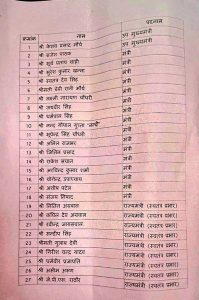 क्रमांक नाम पदनाम
1 श्री केशव प्रसाद मौर्य उप मुख्यमंत्री
2 श्री ब्रजेश पाठक उप मुख्यमंत्री
3 श्री सूर्य प्रताप शाही मंत्री
4 श्री सुरेश कुमार खन्ना मंत्री
5 श्री स्वतंत्र देव सिंह मंत्री
6 श्रीमती बेबी रानी मौर्य मंत्री
7 श्री लक्ष्मी नारायण चौधरी मंत्री
8 श्री जयवीर सिंह मंत्री
9 श्री धर्मपाल सिंह मंत्री
10 श्री नन्द गोपाल गुप्ता "नन्दी" मंत्री
11 श्री भूपेन्द्र सिंह चौधरी मंत्री
12 श्री अनिल राजभर मंत्री
13 श्री जितिन प्रसाद मंत्री
14 श्री राकेश सचान मंत्री
15 श्री अरविन्द कुमार शर्मा मंत्री
16 श्री योगेन्द्र उपाध्याय मंत्री
17 श्री आशीष पटेल मंत्री
18 श्री संजय निषाद मंत्री
19 श्री नितिन अग्रवाल राज्यमंत्री (स्वतंत्र प्रभार)
20 श्री कपिल देव अग्रवाल राज्यमंत्री (स्वतंत्र प्रभार)
21 श्री रवीन्द्र जायसवाल राज्यमंत्री (स्वतंत्र प्रभार)
22 श्री सन्दीप सिंह राज्यमंत्री (स्वतंत्र प्रभार)
23 श्रीमती गुलाब देवी राज्यमंत्री (स्वतंत्र प्रभार)
24 श्री गिरीश चन्द्र यादव राज्यमंत्री (स्वतंत्र प्रभार)
25 श्री धर्मवीर प्रजापति राज्यमंत्री (स्वतंत्र प्रभार)
26 श्री असीम अरुण राज्यमंत्री (स्वतंत्र प्रभार)
27 श्री जे.पी.एस. राठौर राज्यमंत्री (स्वतंत्र प्रभार)